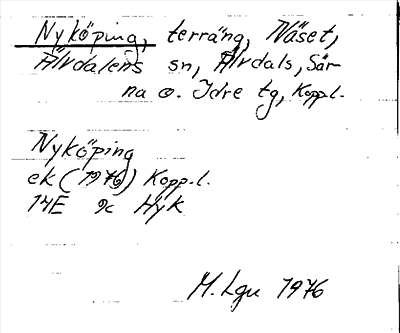 Nyköping, terräng, Näset,
Älvdalens sn, Älvdals, Sär-
na o. Idre tg, Kopp.l.
Nyköping
ek (1976) Kopp.l.
14E 9c Hyk
M. Lgn 1976